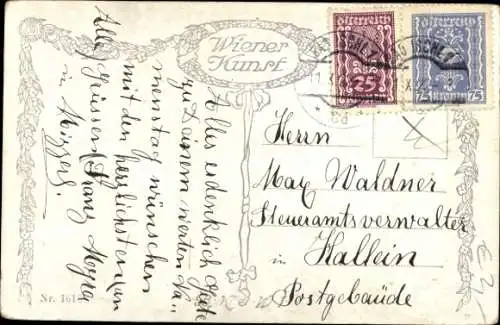 Wiener
Kunst
Österreich
25
Österreich
75 Kronen 75
Alles erdenklich gute
zu deinem werten Na-
menstag wünschen
mit den herzlichsten
Grüssen Franz
in
Herrn
Max Waldner
Steueramtsverwalter
in Hallein
Postgebäude
Nr. 161